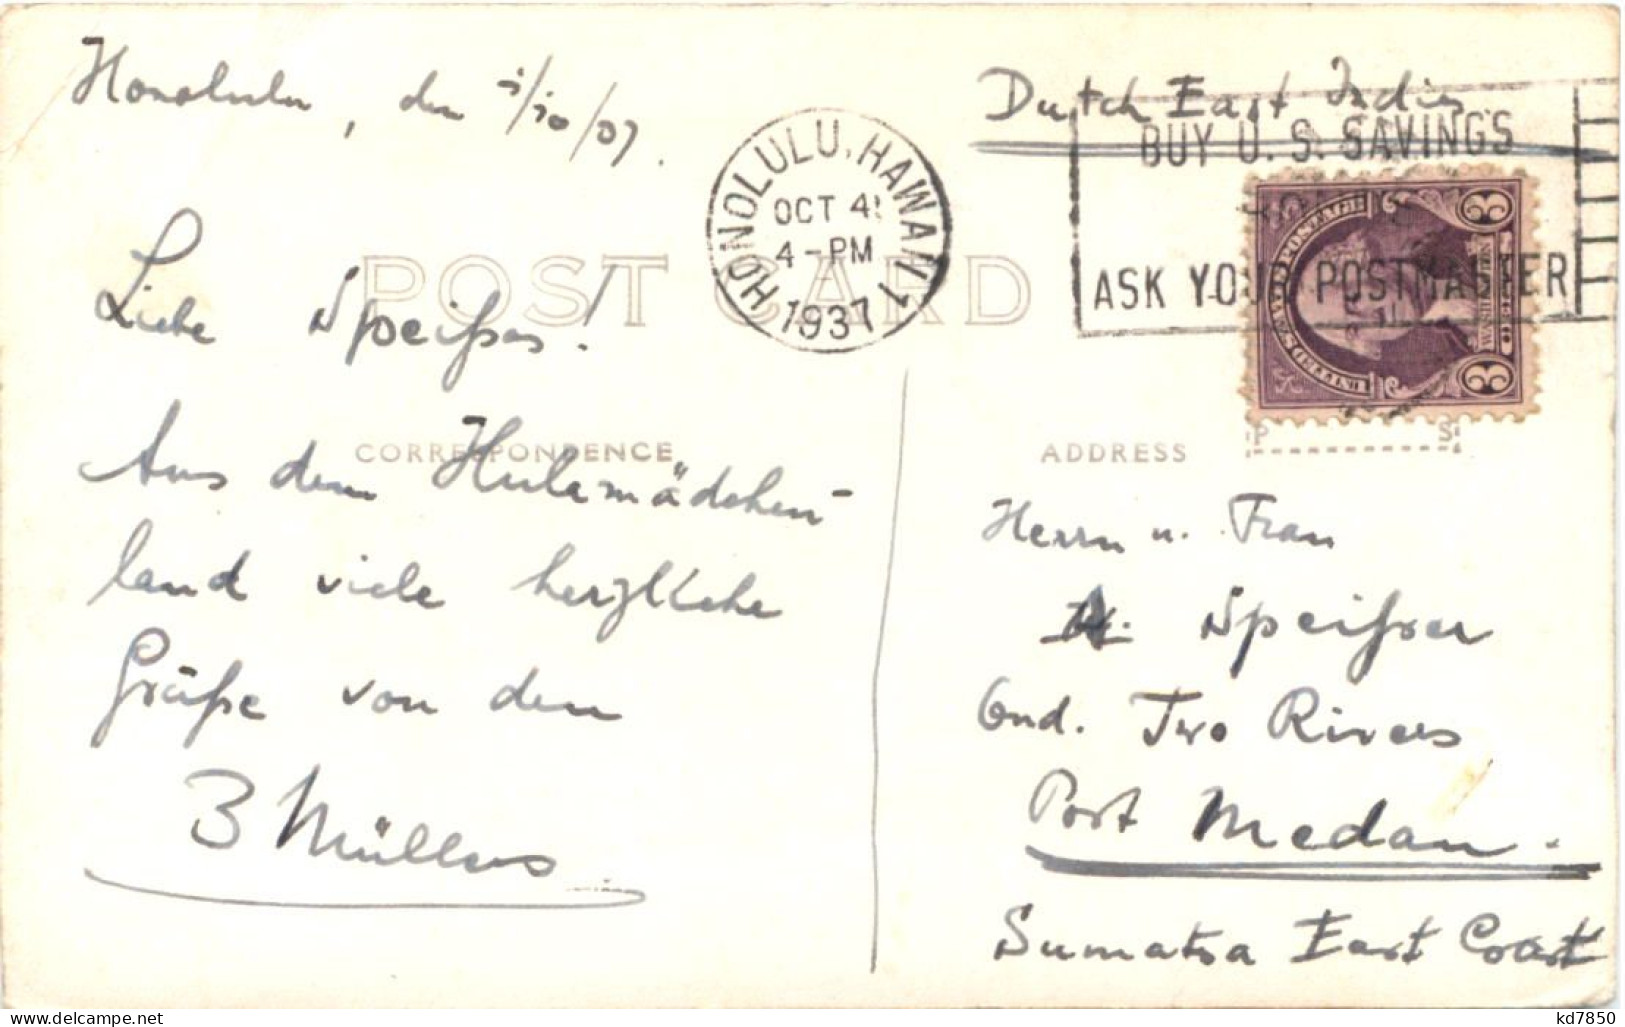 Honolulu, den /10/37.
Liebe Speißers!
Aus dem Hulamädchen-
land viele herzliche
Grüße von den
3 Müllers
POST CARD
CORRESPONDENCE
HONOLULU, HAWAII 1
OCT 4
4-PM
1937
Dutch East Indies
BUY U. S. SAVINGS
ASK YOUR POSTMASTER
UNITED STATES POSTAGE
3 3
P S
ADDRESS
Herrn u. Frau
Speißer
Ond. Two Rivers
Port Medan.
Sumatra East Coast
kd7850